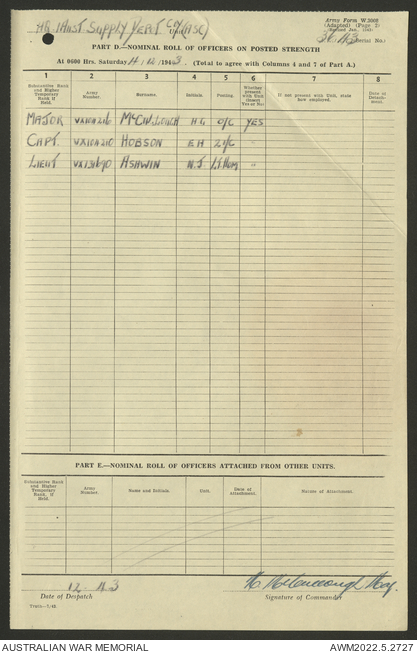 HQ 1 Aust Supply Pers. Coy (AASC)
Army Form W.3008
(Adapted) (Page 2)
(Revised Jan., 1943)
(Unit)
(Serial No.)
PART D.—NOMINAL ROLL OF OFFICERS ON POSTED STRENGTH
At 0600 Hrs. Saturday 4/12/1943. (Total to agree with Columns 4 and 7 of Part A.)
1 2 3 4 5 6 7 8
Substantive Rank and Higher Temporary Rank if Held. Army Number. Surname. Initials. Posting. Whether present with Unit (Insert Yes or No) If not present with Unit, state how employed. Date of Detachment.
MAJOR H G O/C YES
CAPT. HOBSON E H 2i/c "
LIEUT ASHWIN N.J. "
PART E.—NOMINAL ROLL OF OFFICERS ATTACHED FROM OTHER UNITS.
Substantive Rank and Higher Temporary Rank, if Held. Army Number. Name and Initials. Unit. Date of Attachment. Nature of Attachment.
12 43
Maj.
Date of Despatch
Signature of Commander
AUSTRALIAN WAR MEMORIAL
AWM2022.5.2727